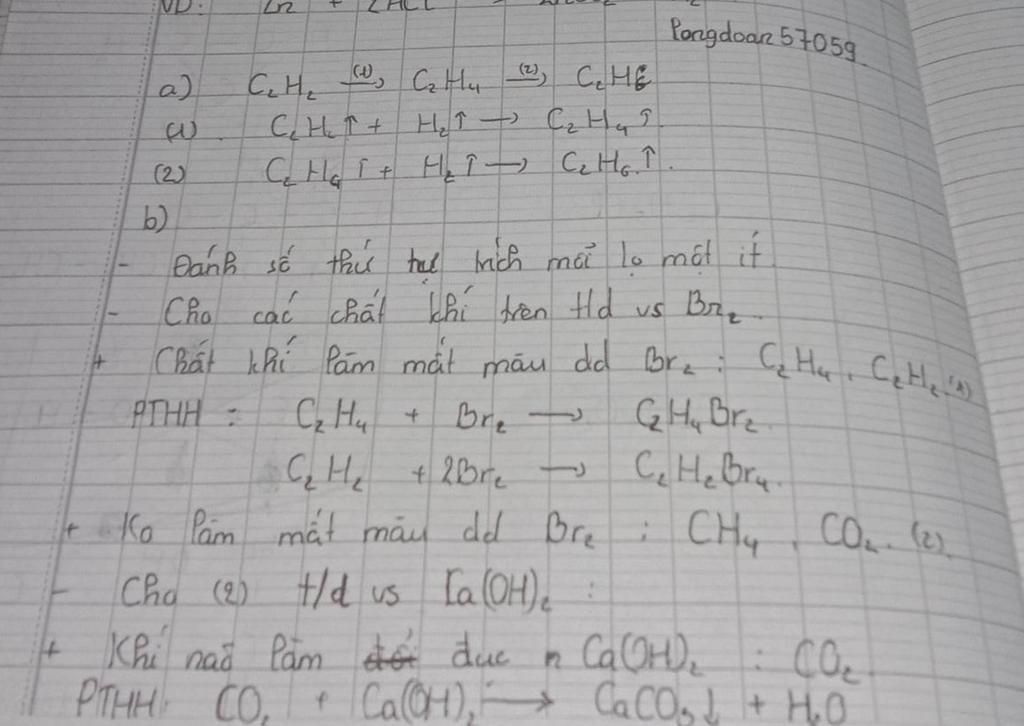 VD: Zn + 2HCl
Pongdoan57059
a) C₂H₂ (1)→ C₂H₄ (2)→ C₂H6
(1) C₂H₂↑ + H₂↑ → C₂H₄↑
(2) C₂H₄↑ + H₂↑ → C₂H₆↑.
b)
- Đánh số thứ tự trích mỗi lọ một ít
- Cho các chất khí trên t/d vs Br₂.
+ Chất khí làm mất màu dd Br₂ : C₂H₄, C₂H₂ (1)
PTHH : C₂H₄ + Br₂ → C₂H₄Br₂.
C₂H₂ + 2Br₂ → C₂H₂Br₄.
+ Ko làm mất màu dd Br₂ : CH₄, CO₂. (2)
- Cho (2) t/d vs Ca(OH)₂ :
+ Khí nào làm đục n Ca(OH)₂ : CO₂
PTHH: CO₂ + Ca(OH)₂ → CaCO₃↓ + H₂O